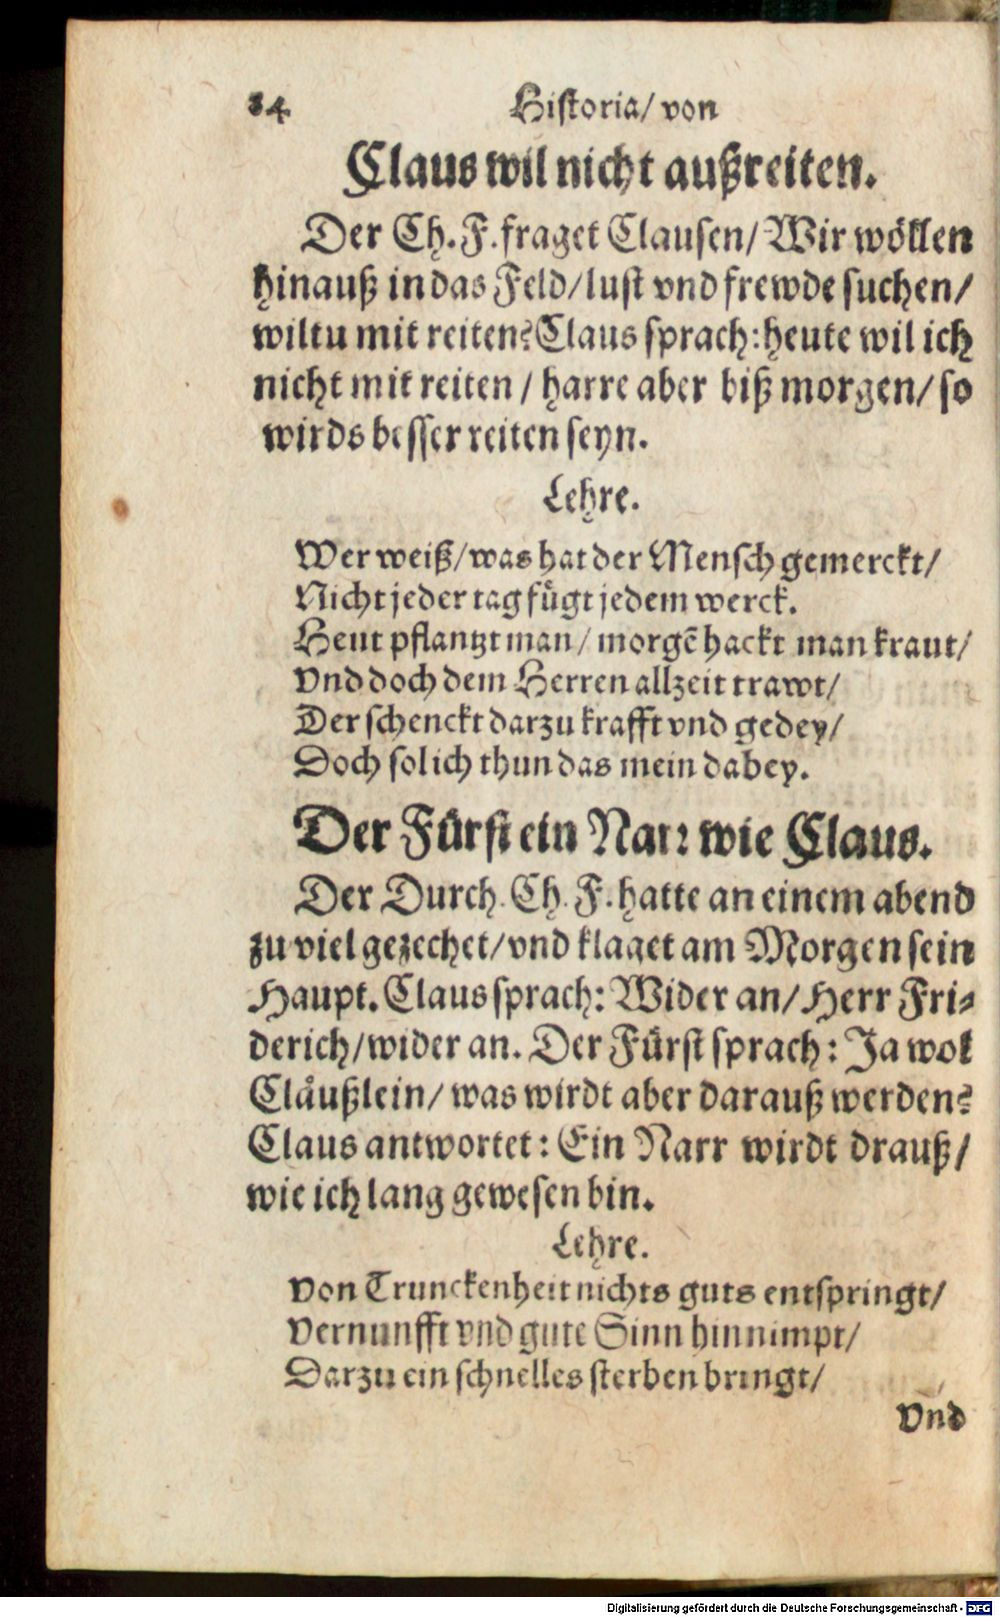 84 Historia/ von
Claus wil nicht außreiten.
Der Ch. F. fraget Clausen/ Wir wöllen
hinauß in das Feld/ lust vnd frewde suchen/
wiltu mit reiten? Claus sprach: heute wil ich
nicht mit reiten / harre aber biß morgen/ so
wirds besser reiten seyn.
Lehre.
Wer weiß/ was hat der Mensch gemerckt/
Nicht jeder tag fügt jedem werck.
Heut pflantzt man/ morgē hackt man kraut/
Vnd doch dem Herren allzeit trawt/
Der schenckt darzu krafft vnd gedey/
Doch sol ich thun das mein dabey.
Der Fürst ein Narr wie Claus.
Der Durch. Ch. F. hatte an einem abend
zu viel gezechet/ vnd klaget am Morgen sein
Haupt. Claus sprach: Wider an/ Herr Fri-
derich/ wider an. Der Fürst sprach: Ja wol
Cläußlein/ was wirdt aber darauß werden?
Claus antwortet: Ein Narr wirdt drauß/
wie ich lang gewesen bin.
Lehre.
Von Trunckenheit nichts guts entspringt/
Vernunfft vnd gute Sinn hinnimpt/
Darzu ein schnelles sterben bringt/
Vnd
Digitalisierung gefördert durch die Deutsche Forschungsgemeinschaft - DFG